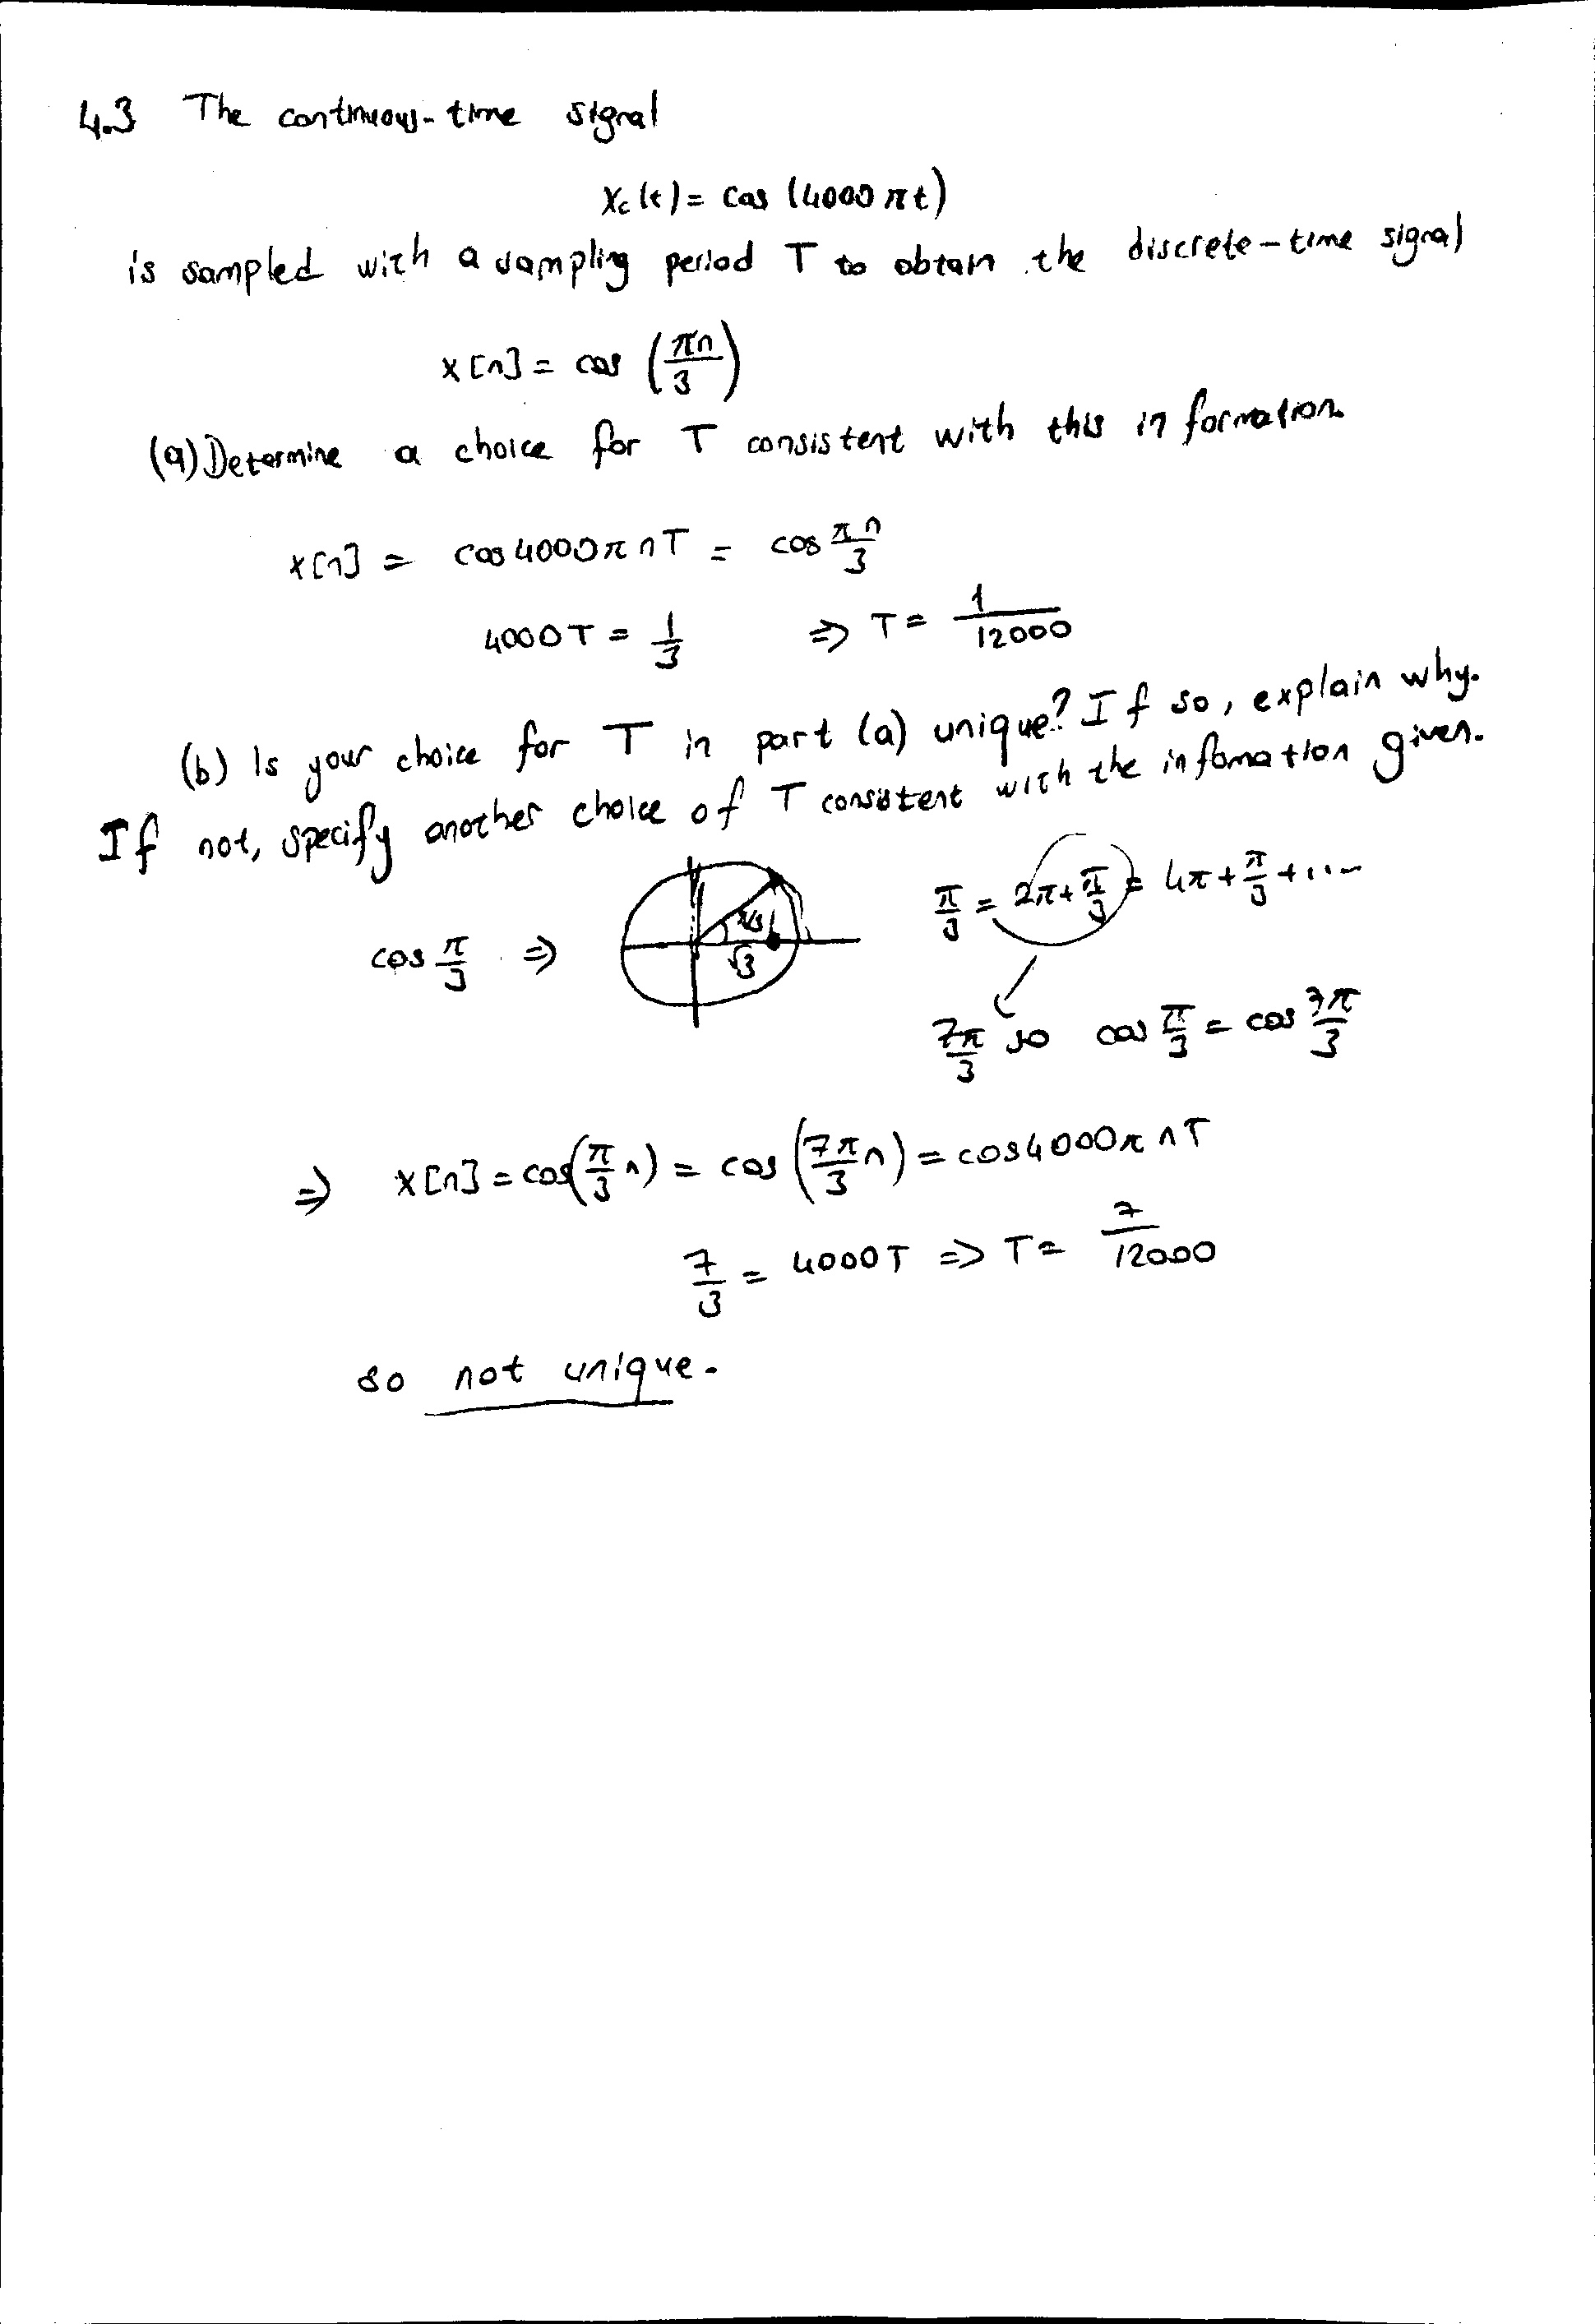 4.3 The continuous-time signal
Xc(t) = cos (4000πt)
is sampled with a sampling period T to obtain the discrete-time signal
x[n] = cos (πn/3)
(a) Determine a choice for T consistent with this information.
x[n] = cos 4000πnT = cos πn/3
4000T = 1/3 ⇒ T = 1/12000
(b) Is your choice for T in part (a) unique? If so, explain why.
If not, specify another choice of T consistent with the infomation given.
cos π/3 ⇒ π/3 √3
π/3 = 2π + π/3 = 4π + π/3 + ....
7π/3 so cos π/3 = cos 7π/3
⇒ x[n] = cos(π/3 n) = cos (7π/3 n) = cos4000πnT
7/3 = 4000T ⇒ T = 7/12000
so not unique.